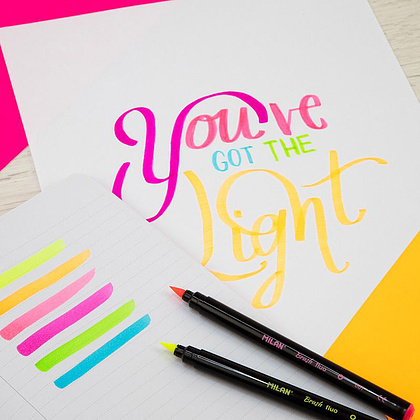 You've
GOT THE
Light
MILAN Brush fluo
MILAN Brush fluo